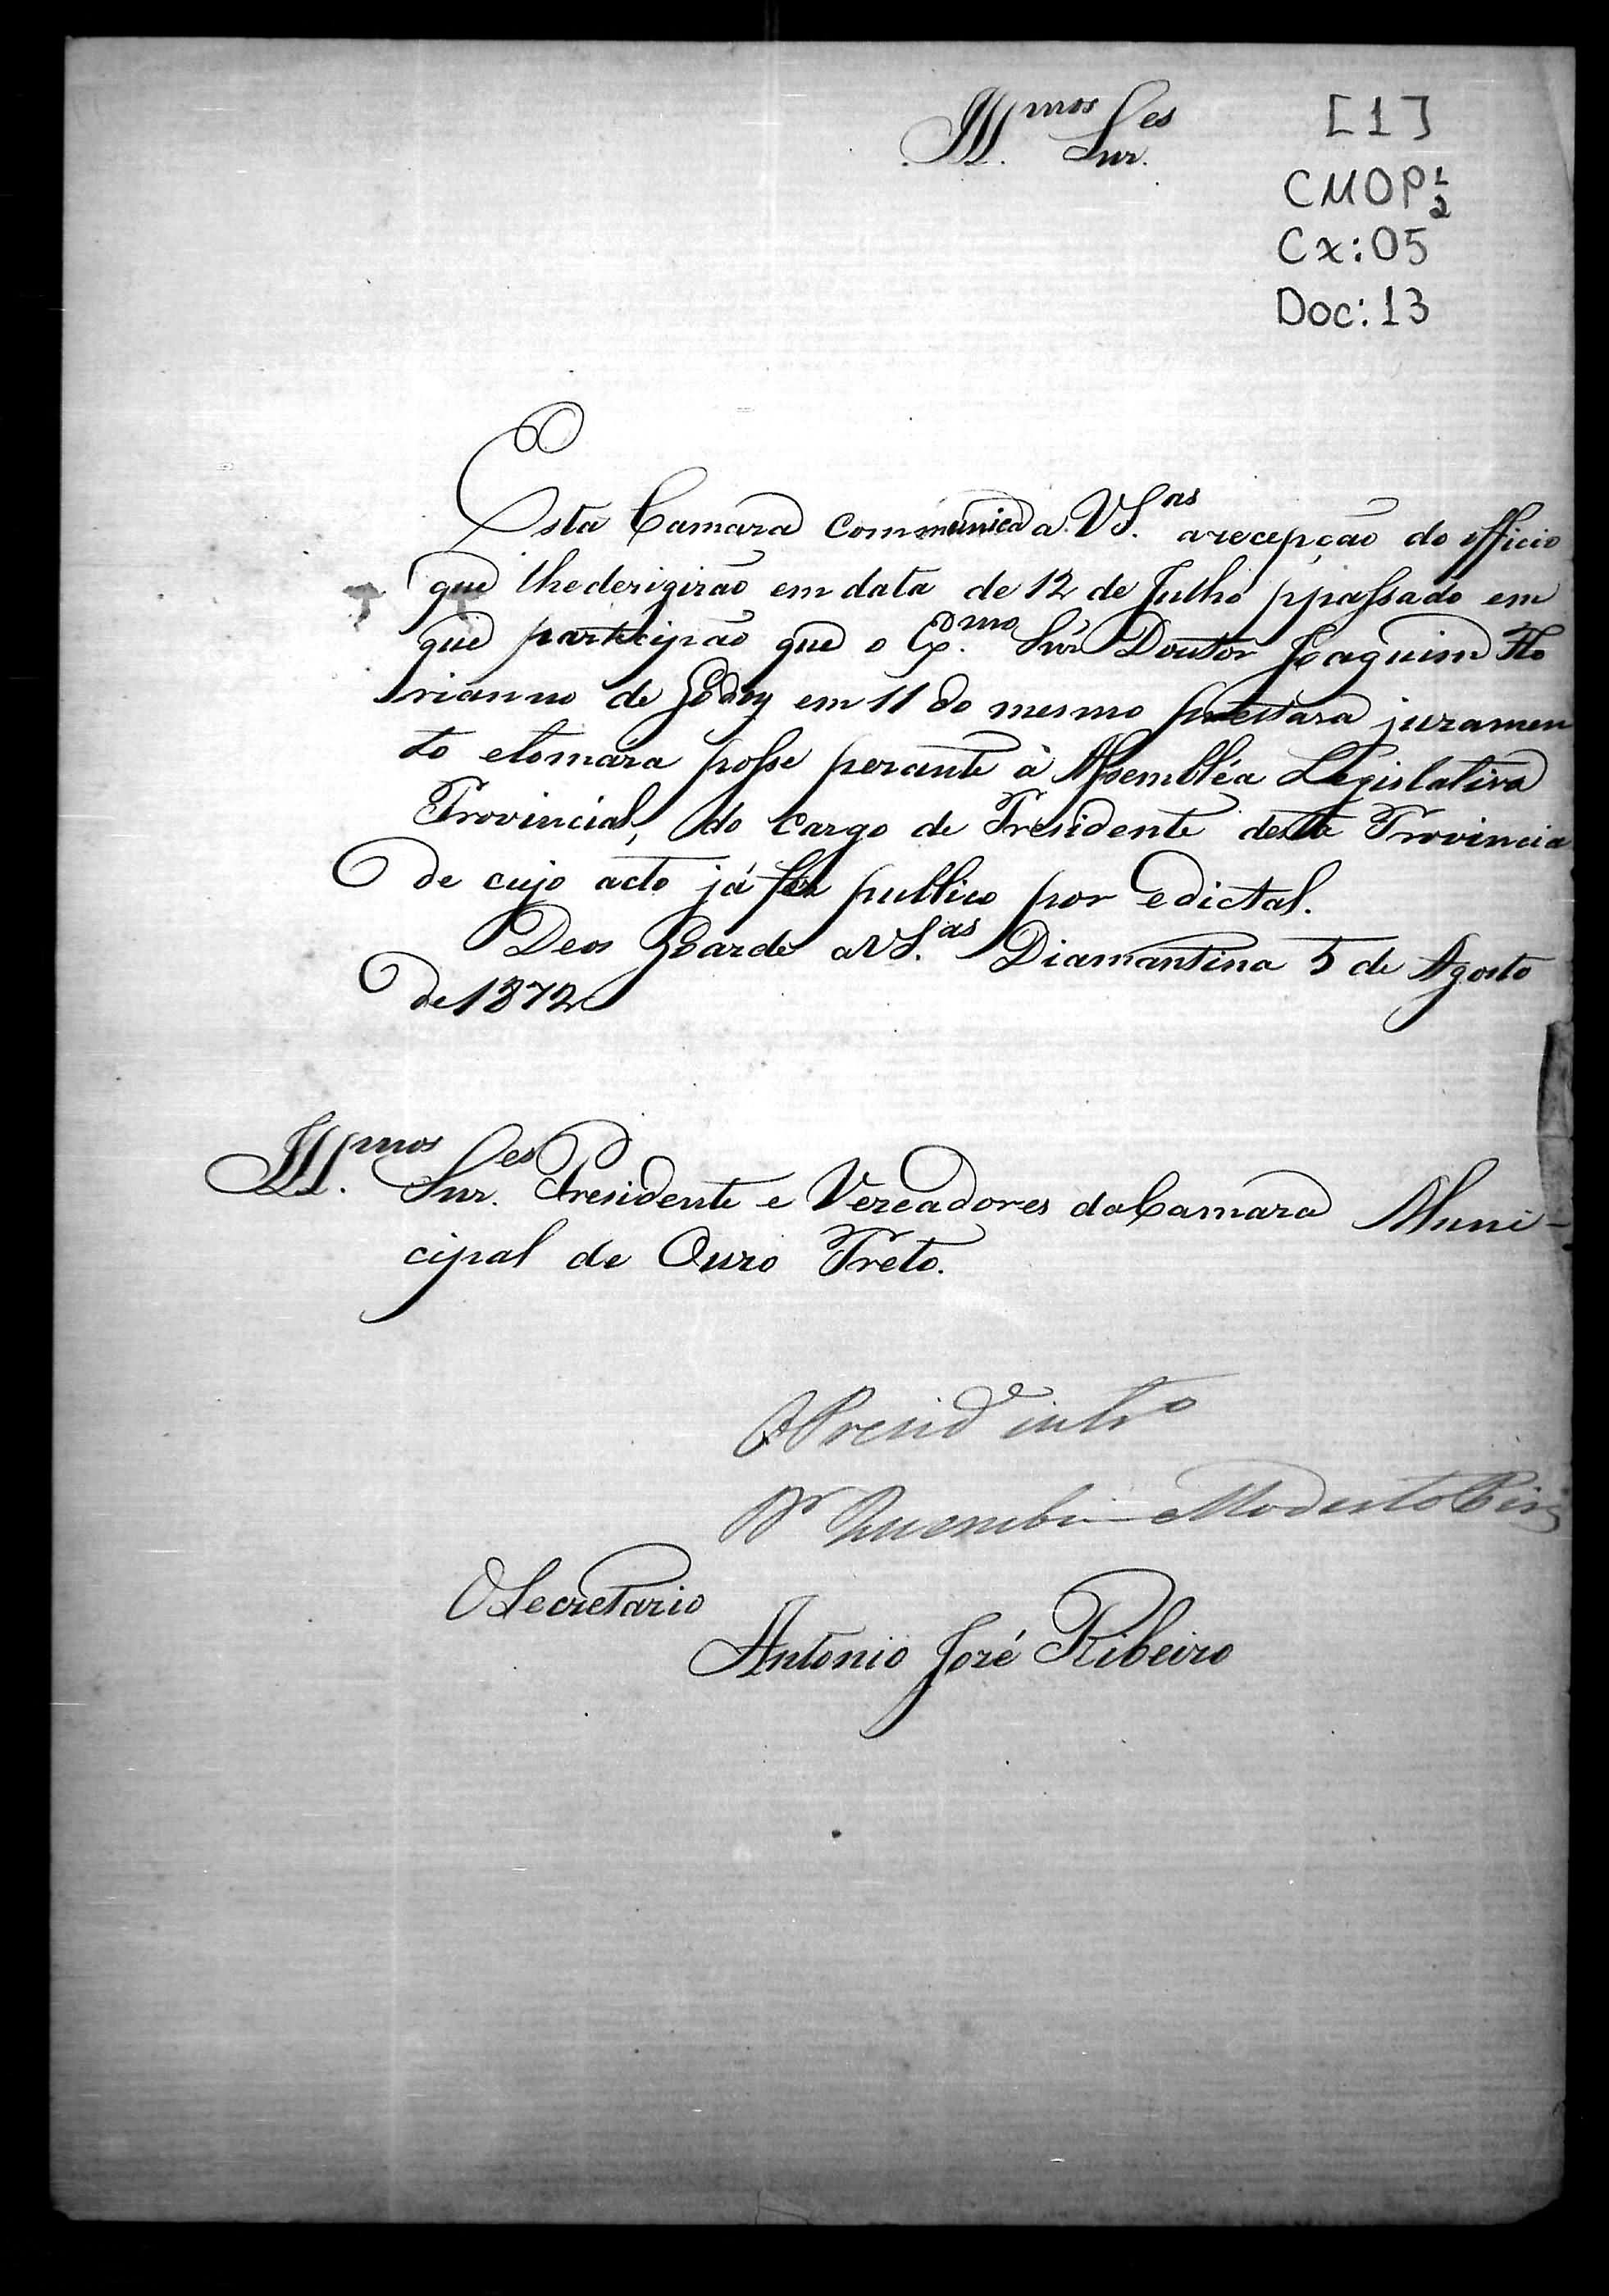 Ill.mos Snr.es
[1]
CMOP 1/2
Cx:05
Doc:13
Esta Camara communica a VS.as arecepção do officio
que lhederigirão em data de 12 de Julho ppassado em
que participão que o Ex.mo Snr Doutor Joaquim Flo
rianno de Godoy em 11 do mesmo prestara juramen
to etomára posse perante à Assembléa Legislativa
Provincial, do Cargo de Presidente desta Provincia
de cujo acto já fez publico por edictal.
Deos Guarde aVS.as Diamantina 5 de Agosto
de 1872
Ill.mos Snr.es Presidente e Vereadores daCamara Muni-
cipal de Ouro Preto.
OPresid.e int.o
Dr Modesto
OSecretario
Antonio José Ribeiro